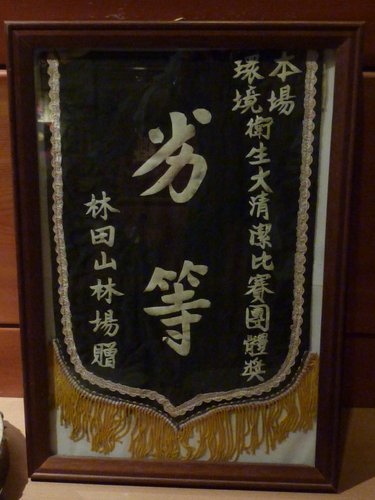 本場
環境衛生大清潔比賽團體獎
劣等
林田山林場贈